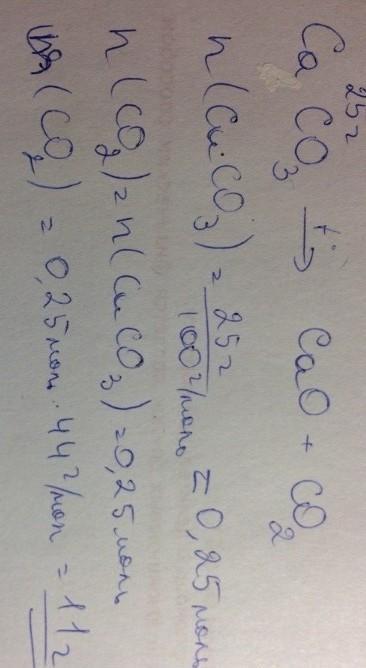 25 г
CaCO₃ →t° CaO + CO₂
n(CaCO₃) = 25 г / 100 г/моль = 0,25 моль
n(CO₂) = n(CaCO₃) = 0,25 моль
m(CO₂) = 0,25 моль · 44 г/мол = 11 г